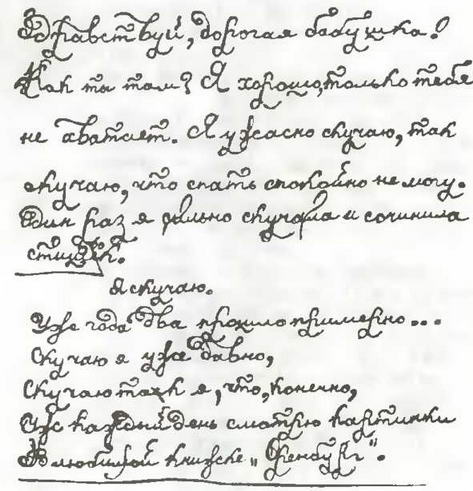 Здравствуй, дорогая бабушка!
Как ты там? Я хорошо, только тебя
не хватает. Я ужасно скучаю, так
скучаю, что спать спокойно не могу.
Один раз я сильно скучала и сочинила
стишок.
Я скучаю.
Уже года два прошло примерно...
Скучаю я уже давно,
Скучаю так я, что, конечно,
Уж каждый день смотрю картинки
В любимой книжке „